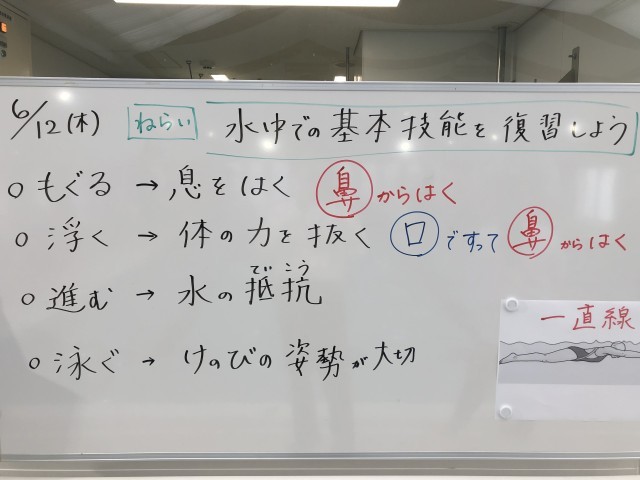 6/12(木) ねらい 水中での基本技能を復習しよう
○もぐる → 息をはく 鼻からはく
○浮く → 体の力を抜く 口ですって鼻からはく
○進む → 水の抵抗
ていこう
一直線
○泳ぐ → けのびの姿勢が大切